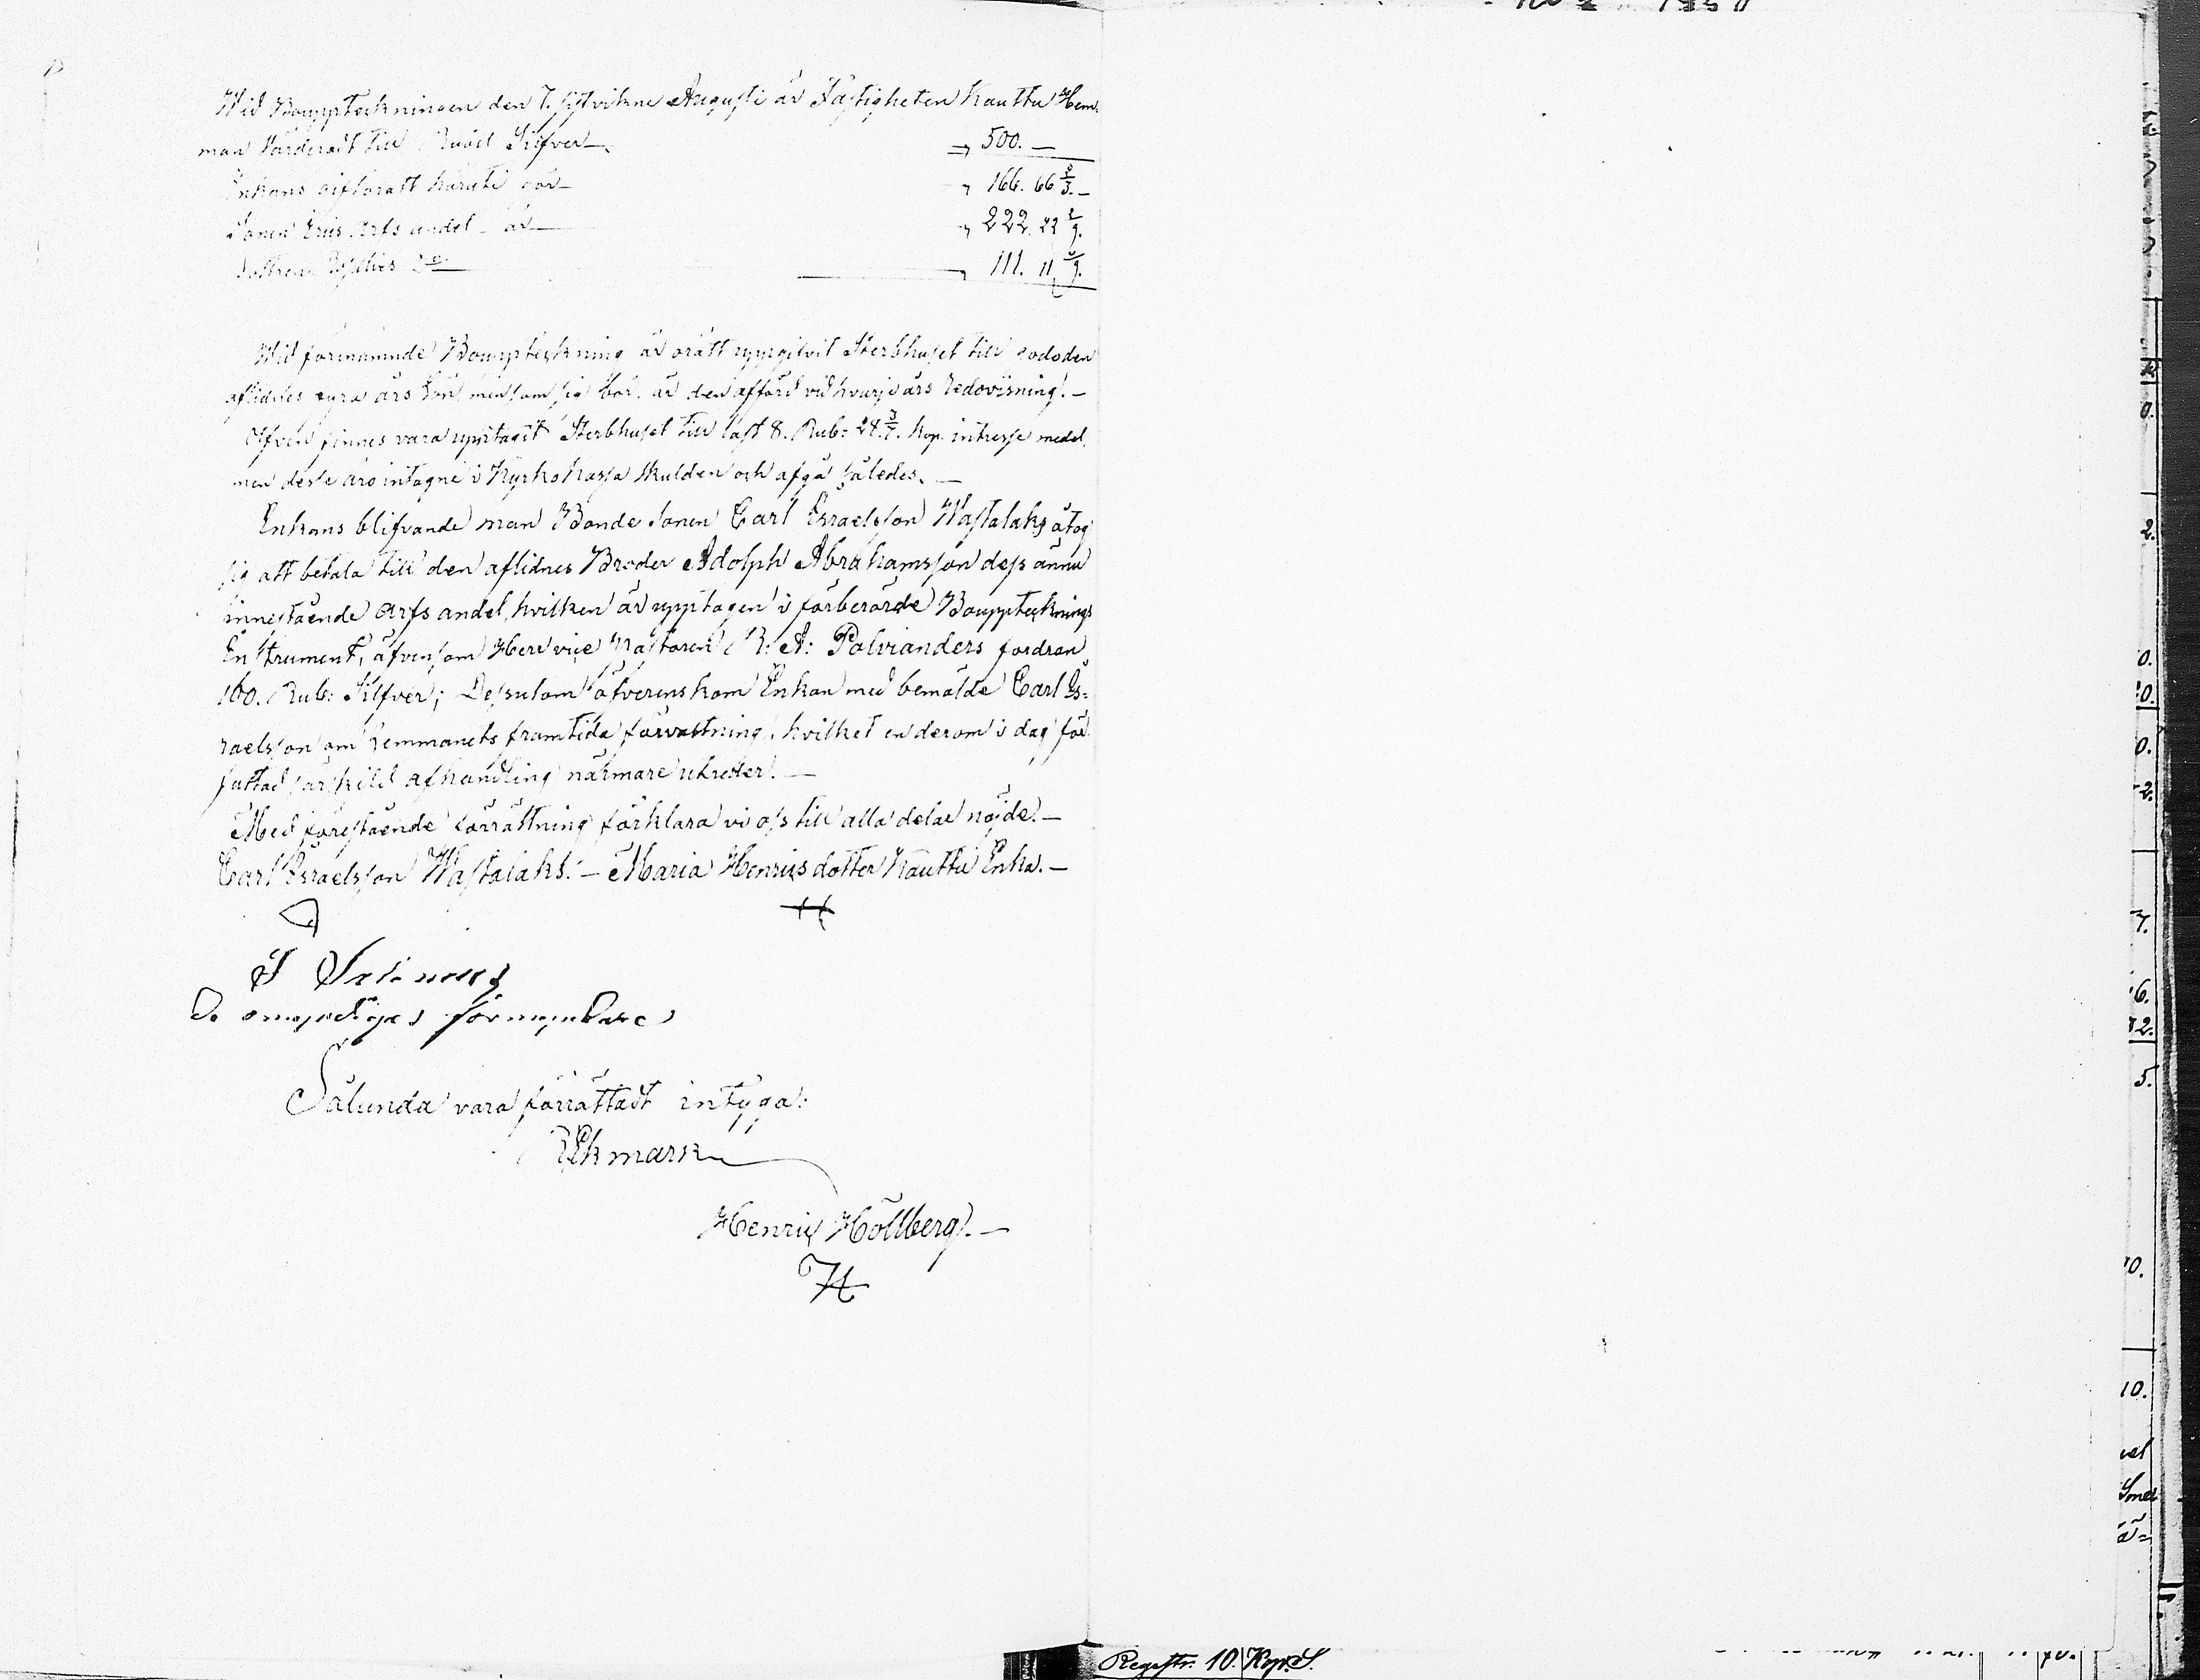 Wid Bouppteckningen den 7. sistvikne Augusti är Fastigheten Kauttu Hem-
man Värderadt till Rubel Silfver — " 500. —
Enkans giftorätt häruti gör — " 166. 66 2/3. —
Sonen Erics Arfs andel är — " 222. 22 2/9.
Dottren do — " 111. 11 1/9.
Wid förenämnde Bouppteckning är orätt uppgifvit Sterbhuset till godo den
aflidnes fyra års lön men som sig bör, är den afförd vid hvarje års redovisning. —
Äfven finnes vara upptagit Sterbhuset till last 8. Rub: 24. 3/7. kop. intresse medel,
men desse äro intagne i Kyrko Kassa skulden och afgå således. —
Enkans blifvande man Bonde Sonen Carl Israelsson Wastalaks åtog
sig att betala till den aflidnes Broder Adolph Abrahamsson dess ännu
innestående arfs andel, hvilken är upptagen i förberörde Bouppteknings
Instrument, äfvensom Herr vice Pastoren R: A: Polvianders fordran
160. Rub: Silfver; Dessutom öfverenskom Enkan med bemälde Carl Is-
raelsson om hemmanets framtida förvaltning, hvilket en derom i dag för-
fattad särskild afhandling närmare utreder. —
Med förestående förrättning förklara vi oss till alla delar nöjde. —
Carl Israelsson Wastalaks. — Maria Henricsdotter Kauttu Enka. —
De omyndiges förmyndare
Sålunda vara förrättadt intyga:
Ekmark
Henric Höllberg. —
Registr. 10. Kop. S.